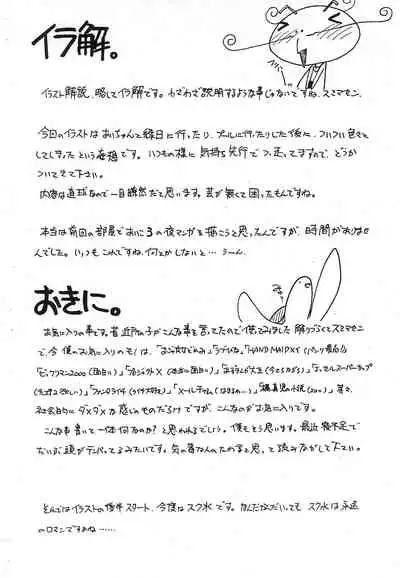 イラ解。
イラスト解説、略してイラ解です。わざわざ説明するような事じゃないですね、スミマセン。
今回のイラストはおいちゃんと縁日に行ったり、プールに行ったりした後に、ついつい色々と
してしまったという妄想です。いつもの様に気持ち先行でつっ走ってますので、どうか
ついてきて下さい。
内容は直球なので一目瞭然だと思います。芸が無くて困ったもんですね。
本当は前回の部屋でおに3の夜マンガを描こうと思ったんですが、時間がありませ
んでした。いつもこれですね、何とかしないと…うーん。
おきに。
お気に入りの事です。昔近所の子がこんな事を言ってたので使ってみました 解りづらくてスミマセン
で、今僕のお気に入りのモノは、「ラブひな」「HAND MAID メイ
ゼップマン2000(面白い)」「プロジェクトX
「ファンタライチ」「Xールディム
社会的にダメダメな感じのものだらけですが、こんなのがお気に入りです。
こんな事書いて一体何なのか？と思われるでしょう。僕もそう思います。最近寝不足で
だいぶ頭がテンパってるみたいです。気の毒な人のたわ言と思って読みながして下さい。
それではイラストの後半スタート、今度はスク水です。なんだかんだいっても スク水は永遠
のロマンですよね……